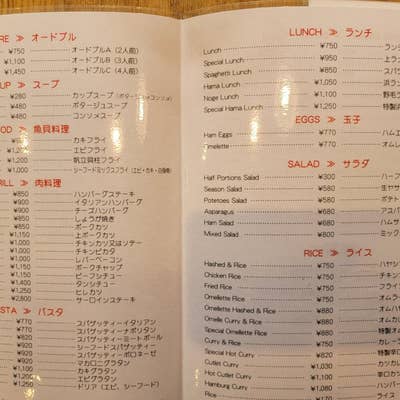 RE ≫ オードブル
¥750 オードブルA (2人前)
¥1,100 オードブルB (3人前)
¥1,450 オードブルC (4人前)
UP ≫ スープ
¥280 カップスープ (ポタージュorコンソメ)
¥480 ポタージュスープ
¥480 コンソメスープ
OD ≫ 魚貝料理
カキフライ
エビフライ
帆立貝柱フライ
シーフードミックスフライ
RILL ≫ 肉料理
¥850 ハンバーグステーキ
¥950 イタリアンハンバーグ
チーゴハンバーグ
¥850 しょうが焼き
¥850 ポークカツ
¥1,150 上ポークカツ
¥1,100 チキンカツ又はソテー
¥1,100 チキンピカタ
¥1,000 レバーベーコン
¥1,200 ポークチャップ
ビーフシチュー
タンシチュー
ヒレカツ
¥2,800 サーロインステーキ
STA ≫ パスタ
¥770 スパゲッティーイタリアン
¥770 スパゲッティーナポリタン
スパゲッティーミートボール
シーフードスパゲッティー
¥920 スパゲッティーボロネーゼ
マカロニグラタン
カキグラタン
エビグラタン
ドリア (エビ、シーフード)
LUNCH ≫ ランチ
Lunch ¥750 ラン
Special Lunch ¥950 上ラン
Spaghetti Lunch ¥750 スパ
Hama Lunch ¥1,200 浜ラン
Noge Lunch ¥1,200 野毛ラ
Special Hama Lunch ¥1,250 特製
EGGS ≫ 玉子
Ham Eggs ¥770 ハムエ
Omelette ¥770 オムレ
SALAD ≫ サラダ
Half Portions Salad ¥300 ハーフ
Season Salad ¥580 生ヤサ
Potetoes Salad ¥580 ポテト
Asparagus ¥650 アスパ
Ham Salad ¥650 ハムサ
Mixed Salad ¥880 ミック
RICE ≫ ライス
Hashed & Rice ¥750 ハヤシ
Chicken Rice ¥750 チキン
Fried Rice ¥750 フライ
Omellette Rice ¥750 オムラ
Omellette Hashed & Rice ¥880 オムハ
Omelle Curry & Rice ¥880 オムカ
Special Omellette Rice ¥880 特製オム
Curry & Rice ¥750 カレーラ
Special Hot Curry ¥820 特製辛口
Cutlet Curry ¥1,030 カツカレ
Hot Cutlet Curry ¥1,130 辛口カツ
Hamburg Curry ¥1,030
Rice